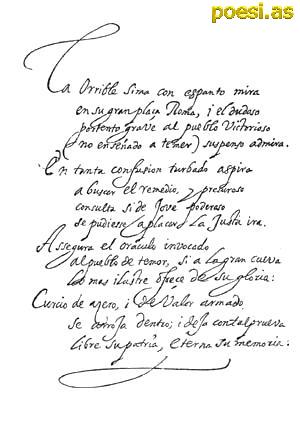 poesi.as
La Orrible sima con espanto mira
en su gran plaça Roma, i el dudoso
portento grave al pueblo Victorioso
(no enseñado a temer) suspenso admira.
En tanta confusion turbado aspira
a buscar el remedio, y presuroso
consulta si de Jove poderoso
se pudiesse aplacar La Justa ira.
Assegura el oraculo invocado
al pueblo de temor, si a la gran cueva
lo mas ilustre ofrece de su gloria:
Curcio de azero, i de Valor armado
se arroja dentro; i deja con tal prueva
libre su patria, eterna su memoria: